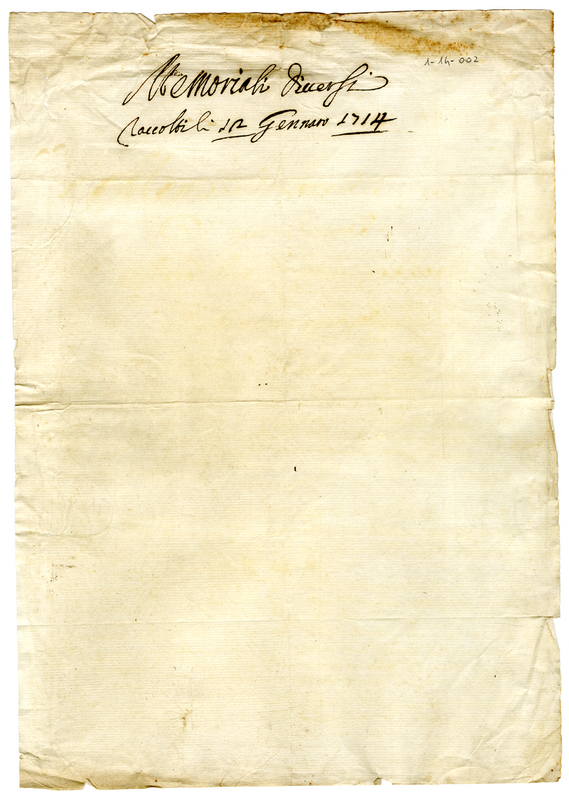 1-14-002
Memoriali diversi
raccolti li 12 Gennaro 1714